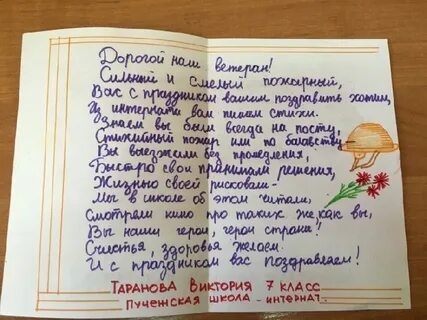 Дорогой наш ветеран!
Сильный и смелый пожарный,
Вас с праздником вашим поздравить хотим,
Из интерната вам пишем стихи.
Знаем вы были всегда на посту,
Стихийный пожар или по баловству
Вы выезжали без промедления,
Быстро свои принимали решения,
Жизнью своей рисковали –
Мы в школе об этом читали,
Смотрели кино про таких же, как вы,
Вы наши герои, герои страны!
Счастья, здоровья желаем!
И с праздником вас поздравляем!
ТАРАНОВА ВИКТОРИЯ 7 КЛАСС
ПУЧЕЖСКАЯ ШКОЛА – ИНТЕРНАТ.